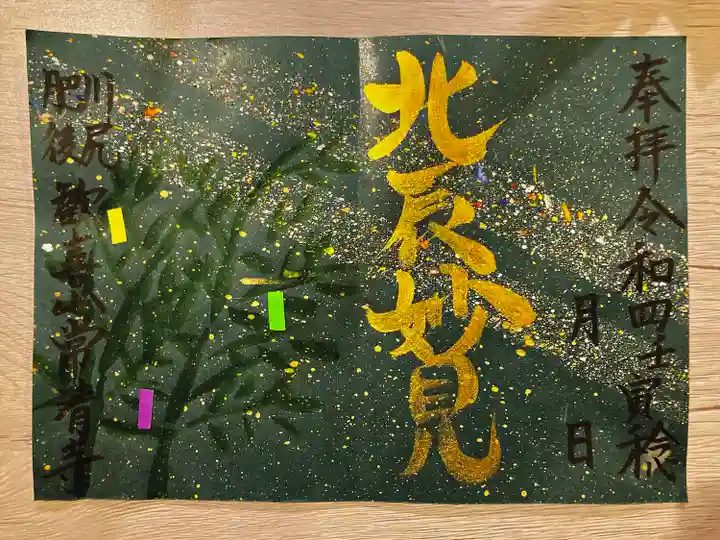 奉拝令和四壬寅稔
月
日
北辰妙見
川尻
肥後歓喜山常清寺